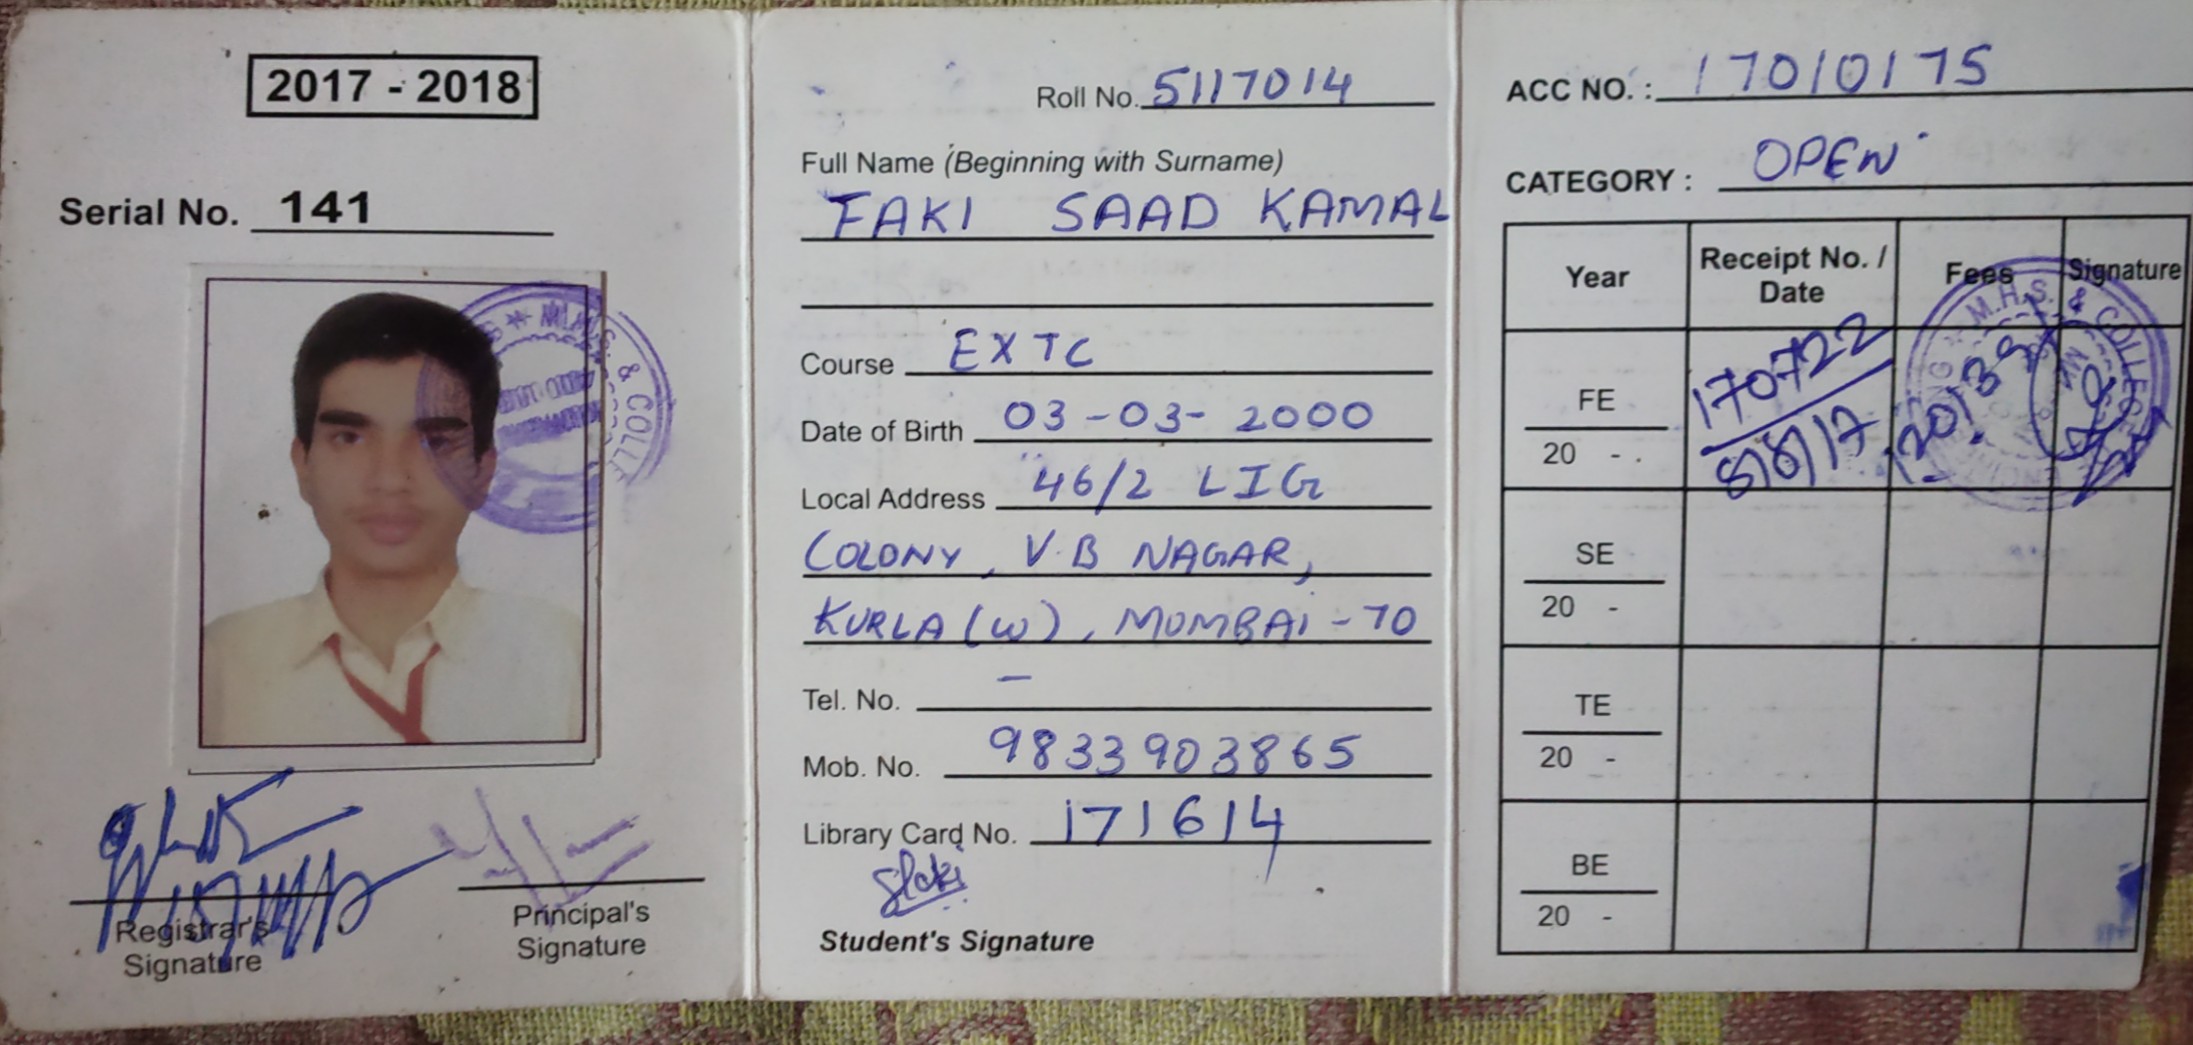 2017 - 2018
Serial No. 141
Registrar's
Signature
Principal's
Signature
Roll No. 5117014
Full Name (Beginning with Surname)
FAKI SAAD KAMAL
Course EXTC
Date of Birth 03-03-2000
Local Address 46/2 LIG
COLONY, V.B NAGAR,
KURLA (W), MUMBAI - 70
Tel. No. —
Mob. No. 9833903865
Library Card No. 171614
Student's Signature
ACC NO. : 17010175
CATEGORY : OPEN
Year Receipt No. / Date Fees Signature
FE 170722
20 - 8/8/17
SE
20 -
TE
20 -
BE
20 -
M.H.S. & COLLEGE
& COLLE